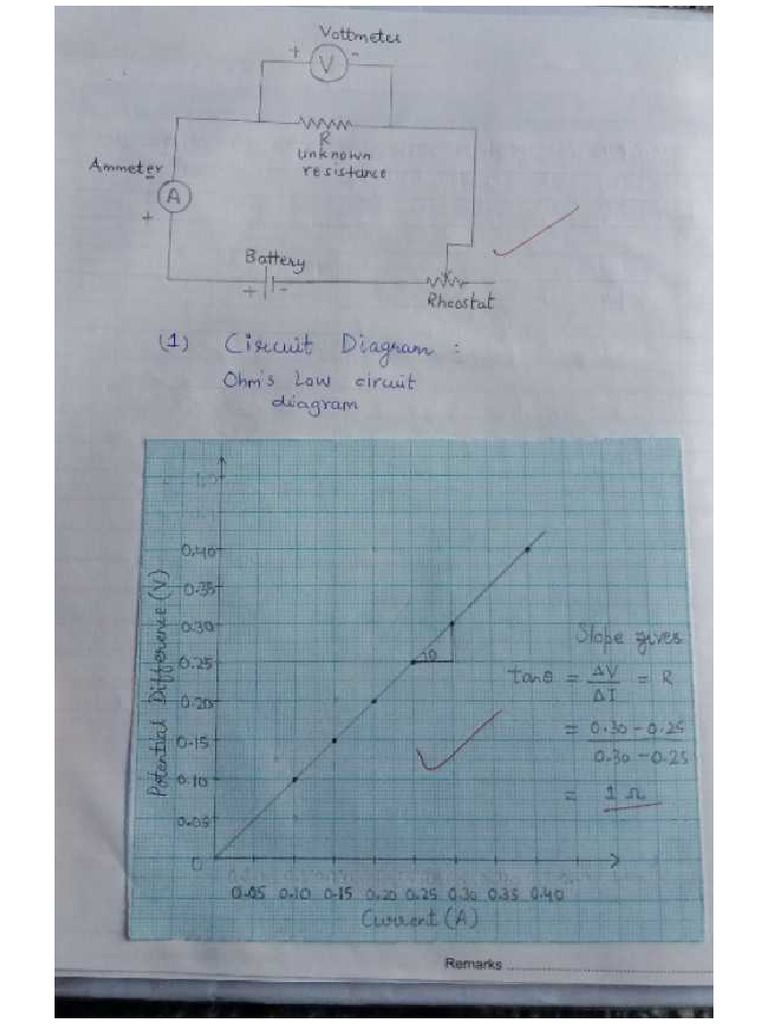 Vottmeter
+ V -
R
unknown
resistance
Ammeter
-
A
+
Battery
+ -
Rheostat
(1) Circuit Diagram :
Ohm's Low ciruit
diagram
Potential Difference (V)
0.40
0.35
0.30
0.25
0.20
0.15
0.10
0.05
0
θ
Slope gives
tanθ = ΔV/ΔI = R
= 0.30 - 0.25
0.30 - 0.25
= 1 Ω
0.05 0.10 0.15 0.20 0.25 0.30 0.35 0.40
Current (A)
Remarks